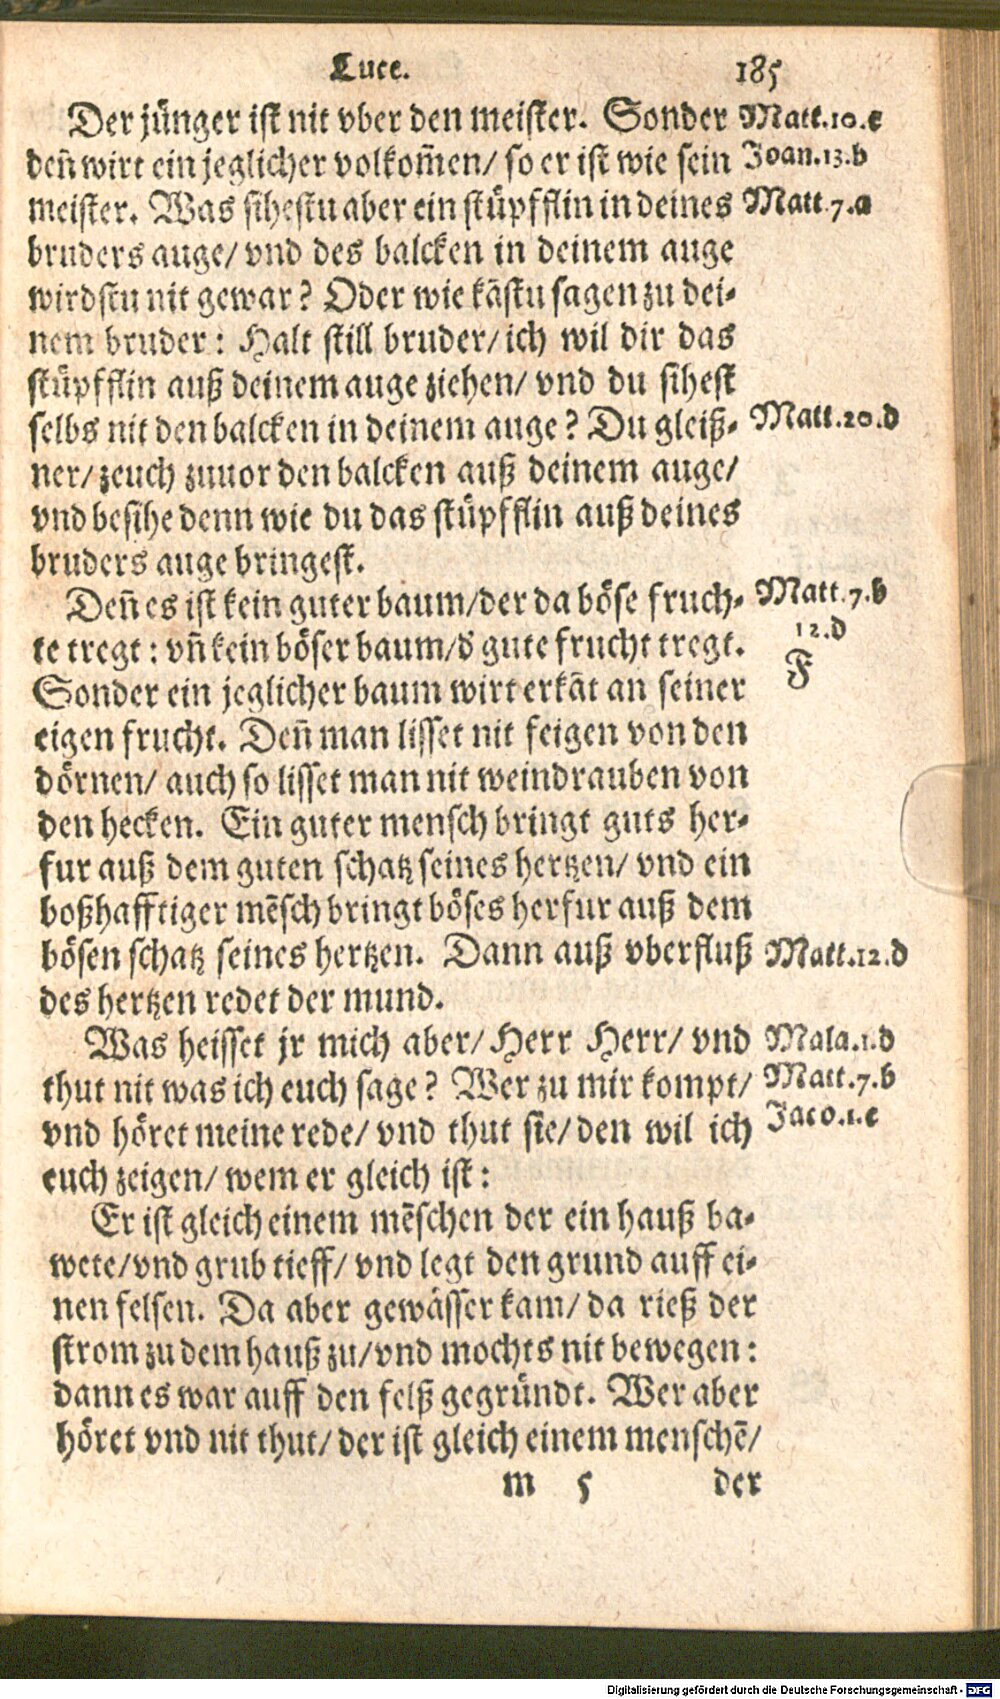 Luce. 185
Der jünger ist nit vber den meister. Sonder Matt.10.c
deñ wirt ein jeglicher volkom̃en/ so er ist wie sein Joan.13.b
meister. Was sihestu aber ein stüpfflin in deines Matt.7.a
bruders auge/ vnd des balcken in deinem auge
wirdstu nit gewar? Oder wie kāstu sagen zu dei-
nem bruder: Halt still bruder/ ich wil dir das
stüpfflin auß deinem auge ziehen/ vnd du sihest
selbs nit den balcken in deinem auge? Du gleiß- Matt.20.d
ner/ zeuch zuuor den balcken auß deinem auge/
vnd besihe denn wie du das stüpfflin auß deines
bruders auge bringest.
Deñ es ist kein guter baum/der da böse fruch- Matt.7.b
te tregt: vñ kein böser baum/d gute frucht tregt. 12.d
Sonder ein jeglicher baum wirt erkāt an seiner F
eigen frucht. Deñ man lisset nit feigen von den
dörnen/ auch so lisset man nit weindrauben von
den hecken. Ein guter mensch bringt guts her-
fur auß dem guten schatz seines hertzen/ vnd ein
boßhafftiger mēsch bringt böses herfur auß dem
bösen schatz seines hertzen. Dann auß vberfluß Matt.12.d
des hertzen redet der mund.
Was heisset jr mich aber/ Herr Herr/ vnd Mala.1.d
thut nit was ich euch sage? Wer zu mir kompt/ Matt.7.b
vnd höret meine rede/ vnd thut sie/ den wil ich Jaco.1.c
euch zeigen/ wem er gleich ist:
Er ist gleich einem mēschen der ein hauß ba-
wete/vnd grub tieff/ vnd legt den grund auff ei-
nen felsen. Da aber gewässer kam/ da rieß der
strom zu dem hauß zu/vnd mochts nit bewegen:
dann es war auff den felß gegründt. Wer aber
höret vnd nit thut/ der ist gleich einem menschē/
m 5 der
Digitalisierung gefördert durch die Deutsche Forschungsgemeinschaft - DFG